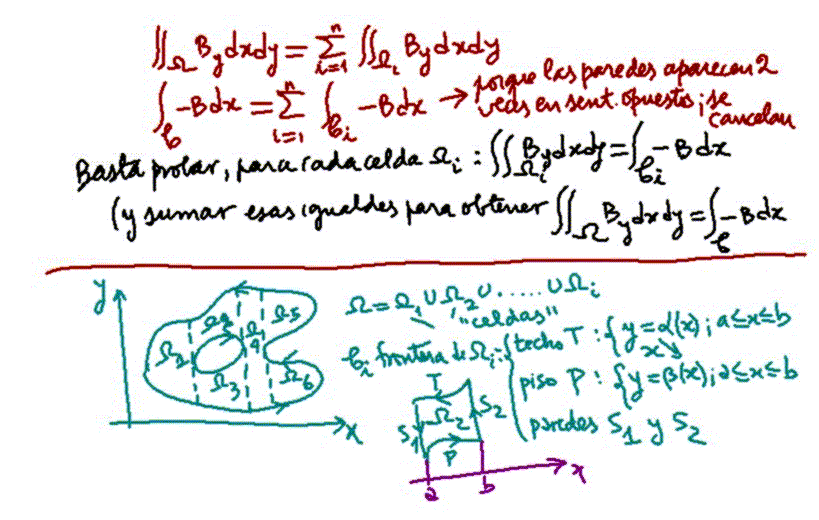 ∬_Ω B_y dxdy = Σ_{i=1}^{n} ∬_{Ω_i} B_y dxdy
∫_𝒞 -Bdx = Σ_{i=1}^{n} ∫_{𝒞_i} -Bdx → porque las paredes aparecen 2
veces en sent. opuestos; se
cancelan
Basta probar, para cada celda Ω_i : ∬_{Ω_i} B_y dxdy = ∫_{𝒞_i} -Bdx
(y sumar esas igualdes para obtener ∬_Ω B_y dxdy = ∫_𝒞 -Bdx
y
Ω = Ω_1 ∪ Ω_2 ∪ ..... ∪ Ω_i
"celdas"
𝒞_i frontera de Ω_i : { techo T : { y = α(x) ; a ≤ x ≤ b
x
piso P : { y = β(x) ; a ≤ x ≤ b
paredes S_1 y S_2
Ω_5
Ω_4
Ω_2
Ω_3
Ω_6
x
T
S_1
Ω_2
S_2
P
a
b
x